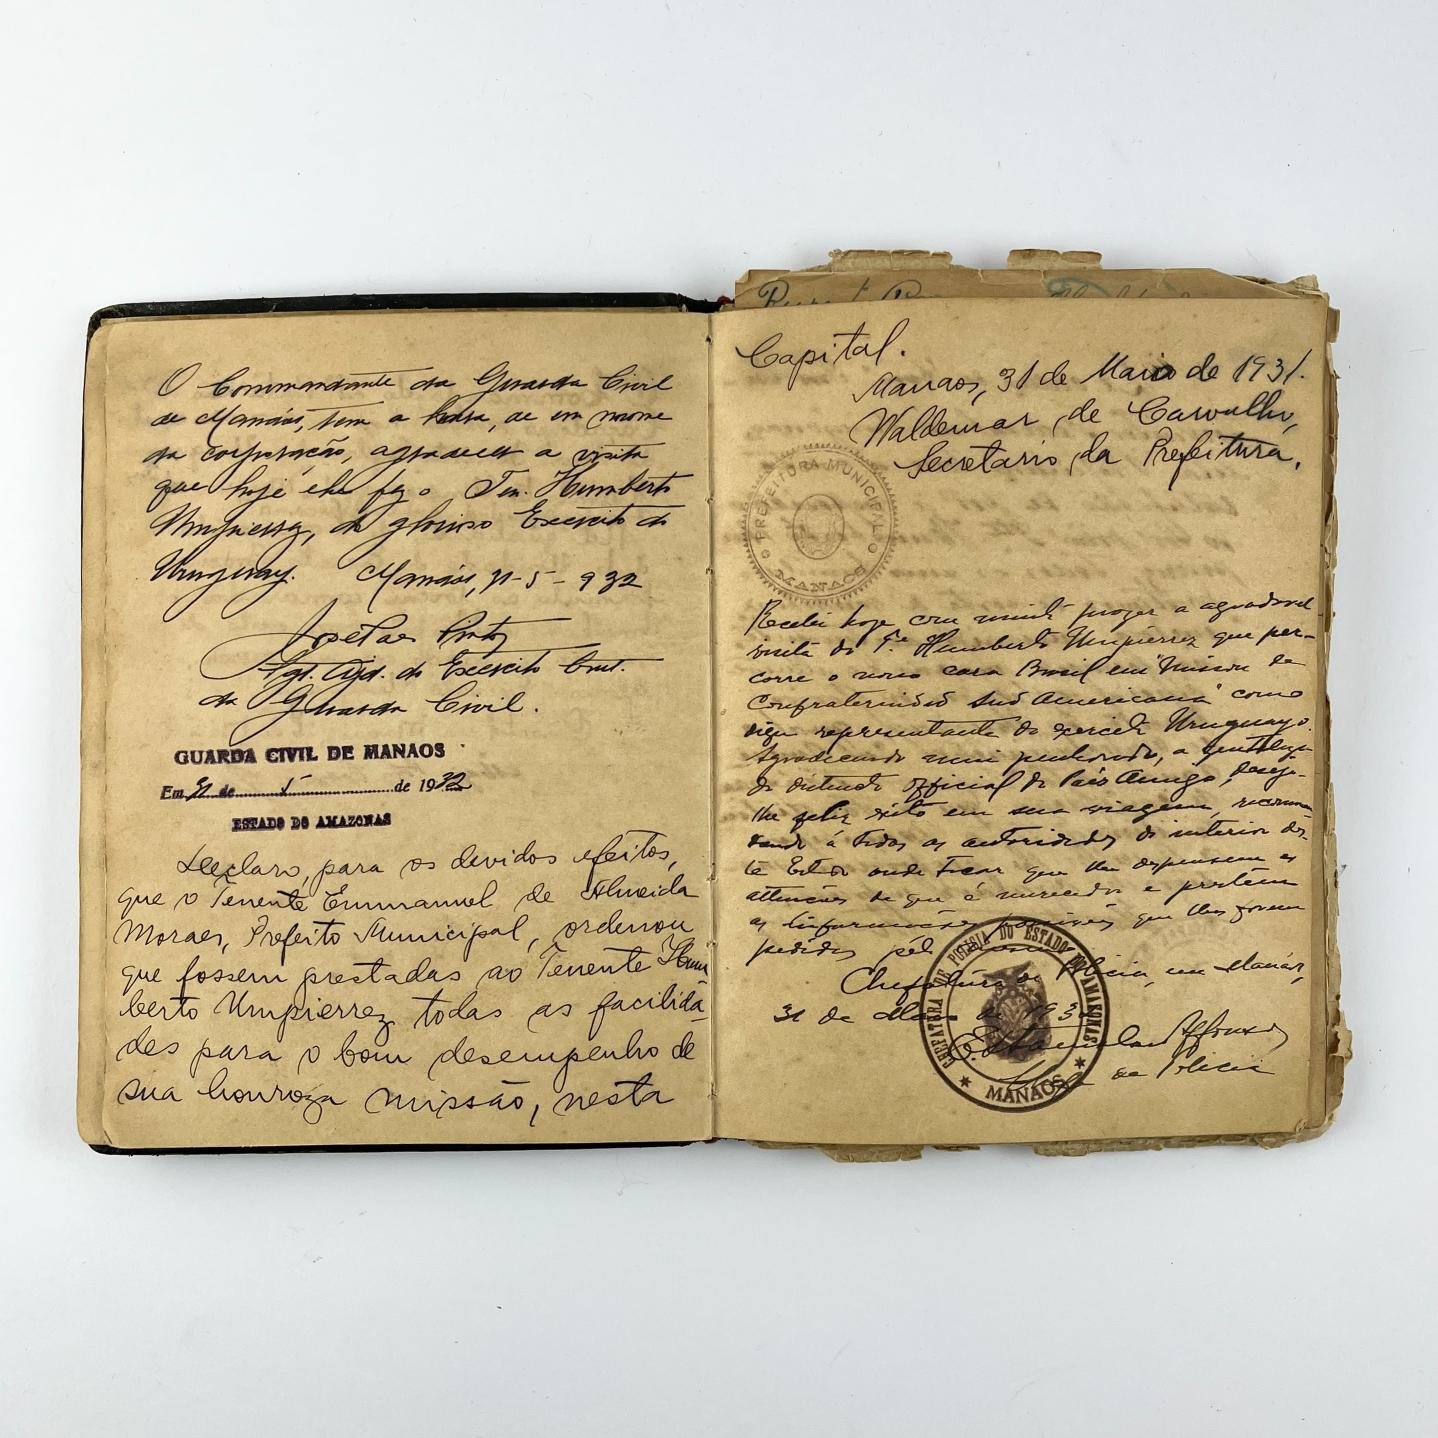 O Commandante da Guarda Civil
de Manáos, tem a honra, de em nome
da corporação, agradecer a visita
que hoje lhe fez o Ten. Humberto
Umpierrez, do glorioso Exercito do
Uruguay. Manáos, 31-5-932
Sgt. Ajd. do Exercito Cmt.
da Guarda Civil.
GUARDA CIVIL DE MANAOS
Em 31 de 5 de 1932
ESTADO DO AMAZONAS
Declaro, para os devidos efeitos,
que o Tenente Emmanuel de Almeida
Moraes, Prefeito Municipal, ordenou
que fossem prestadas ao Tenente Hum
berto Umpierrez todas as facilida-
des para o bom desempenho de
sua houroza missão, nesta
Capital.
Manaos, 31 de Maio de 1931.
Waldemar de Carvalho,
Secretario da Prefeitura.
PREFEITURA MUNICIPAL
MANAOS
Recebi hoje com muito prazer a agradavel
visita do Te. Humberto Umpierrez que per-
corre o nosso caro Brasil em "Missão de
Confraternidad Sud Americana" como
digno representante do exercito Uruguayo.
Agradecendo mui penhorado, a gentileza
do distincto official do Paiz Amigo, desejo-
lhe feliz exito em sua viagem, recommen
dando á todas as autoridades do interior des-
te Estado onde tocar que lhe dispensem as
attenções de que é merecedor e prestem
as informações que lhes forem
pedidas
Chefatura de Policia, em Manáos,
31 de Maio de 193
Chefe de Policia
CHEFATURA DE POLICIA DO ESTADO DO AMAZONAS
MANAOS